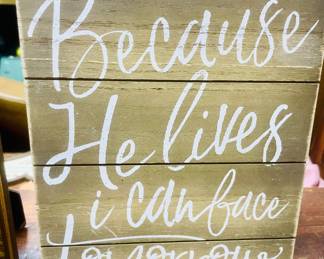 Because
He lives
i can face
tomorrow